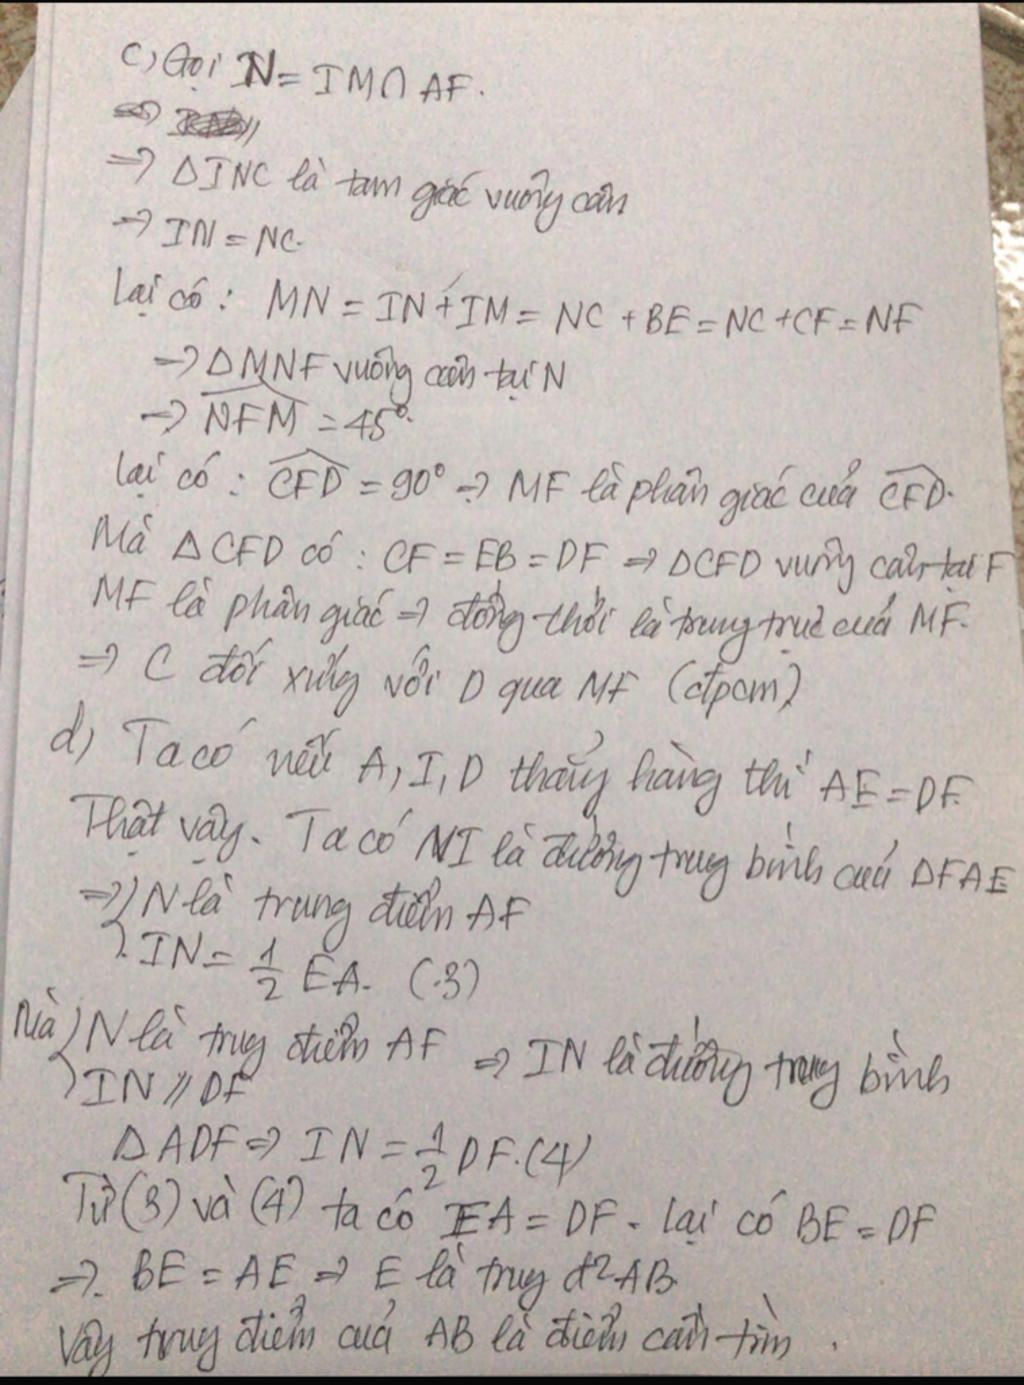 c) Gọi N = IM ∩ AF.
⇒ △INC là tam giác vuông cân
⇒ IN = NC.
Lại có : MN = IN + IM = NC + BE = NC + CF = NF
⇒ △MNF vuông cân tại N
⇒ \widehat{NFM} = 45°.
Lại có : \widehat{CFD} = 90° ⇒ MF là phân giác của \widehat{CFD}.
Mà △CFD có : CF = EB = DF ⇒ △CFD vuông cân tại F
MF là phân giác ⇒ đồng thời là trung trực của MF.
⇒ C đối xứng với D qua MF (đpcm)
d) Ta có nếu A, I, D thẳng hàng thì AE = DF.
Thật vậy. Ta có NI là đường trung bình của △FAE
⇒ N là trung điểm AF
IN = 1/2 EA. (3)
Mà N là trung điểm AF ⇒ IN là đường trung bình
IN // DF
△ADF ⇒ IN = 1/2 DF. (4)
Từ (3) và (4) ta có EA = DF. Lại có BE = DF
⇒ BE = AE ⇒ E là trung đ² AB
Vậy trung điểm của AB là điểm cần tìm.